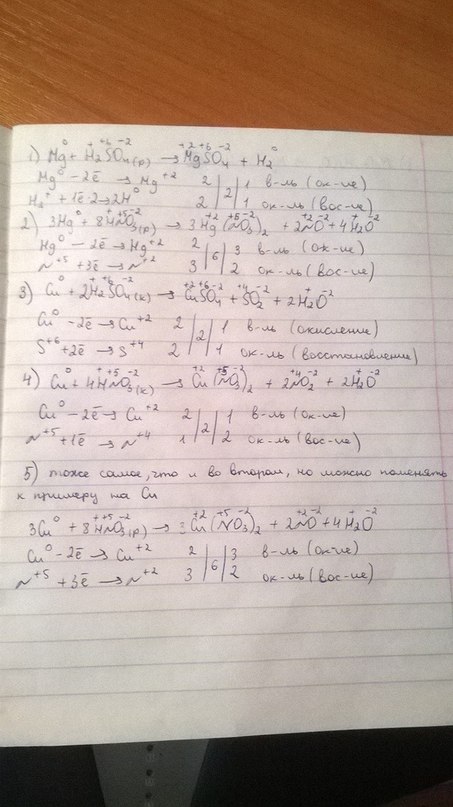 1) Mg⁰ + H₂⁺S⁺⁶O₄⁻²(р) → Mg⁺²S⁺⁶O₄⁻² + H₂⁰
Mg⁰ - 2ē → Mg⁺² 2 | 2 | 1 в-ль (ок-ие)
H₂⁺ + 1ē·2 → 2H⁰ 2 | 1 ок-ль (вос-ие)
2) 3Hg⁰ + 8H⁺N⁺⁵O₃⁻²(р) → 3Hg⁺²(N⁺⁵O₃⁻²)₂ + 2N⁺²O⁻² + 4H₂⁺O⁻²
Hg⁰ - 2ē → Hg⁺² 2 | 6 | 3 в-ль (ок-ие)
N⁺⁵ + 3ē → N⁺² 3 | 2 ок-ль (вос-ие)
3) Cu⁰ + 2H₂⁺S⁺⁶O₄(к) → Cu⁺²S⁺⁶O₄⁻² + S⁺⁴O₂⁻² + 2H₂⁺O⁻²
Cu⁰ - 2ē → Cu⁺² 2 | 2 | 1 в-ль (окисление)
S⁺⁶ + 2ē → S⁺⁴ 2 | 1 ок-ль (восстановление)
4) Cu⁰ + 4H⁺N⁺⁵O₃⁻²(к) → Cu⁺²(N⁺⁵O₃⁻²)₂ + 2N⁺⁴O₂⁻² + 2H₂⁺O⁻²
Cu⁰ - 2ē → Cu⁺² 2 | 2 | 1 в-ль (ок-ие)
N⁺⁵ + 1ē → N⁺⁴ 1 | 2 ок-ль (вос-ие)
5) тоже самое, что и во втором, но можно поменять
к примеру на Cu
3Cu⁰ + 8H⁺N⁺⁵O₃⁻²(р) → 3Cu⁺²(N⁺⁵O₃⁻²)₂ + 2N⁺²O⁻² + 4H₂⁺O⁻²
Cu⁰ - 2ē → Cu⁺² 2 | 6 | 3 в-ль (ок-ие)
N⁺⁵ + 3ē → N⁺² 3 | 2 ок-ль (вос-ие)